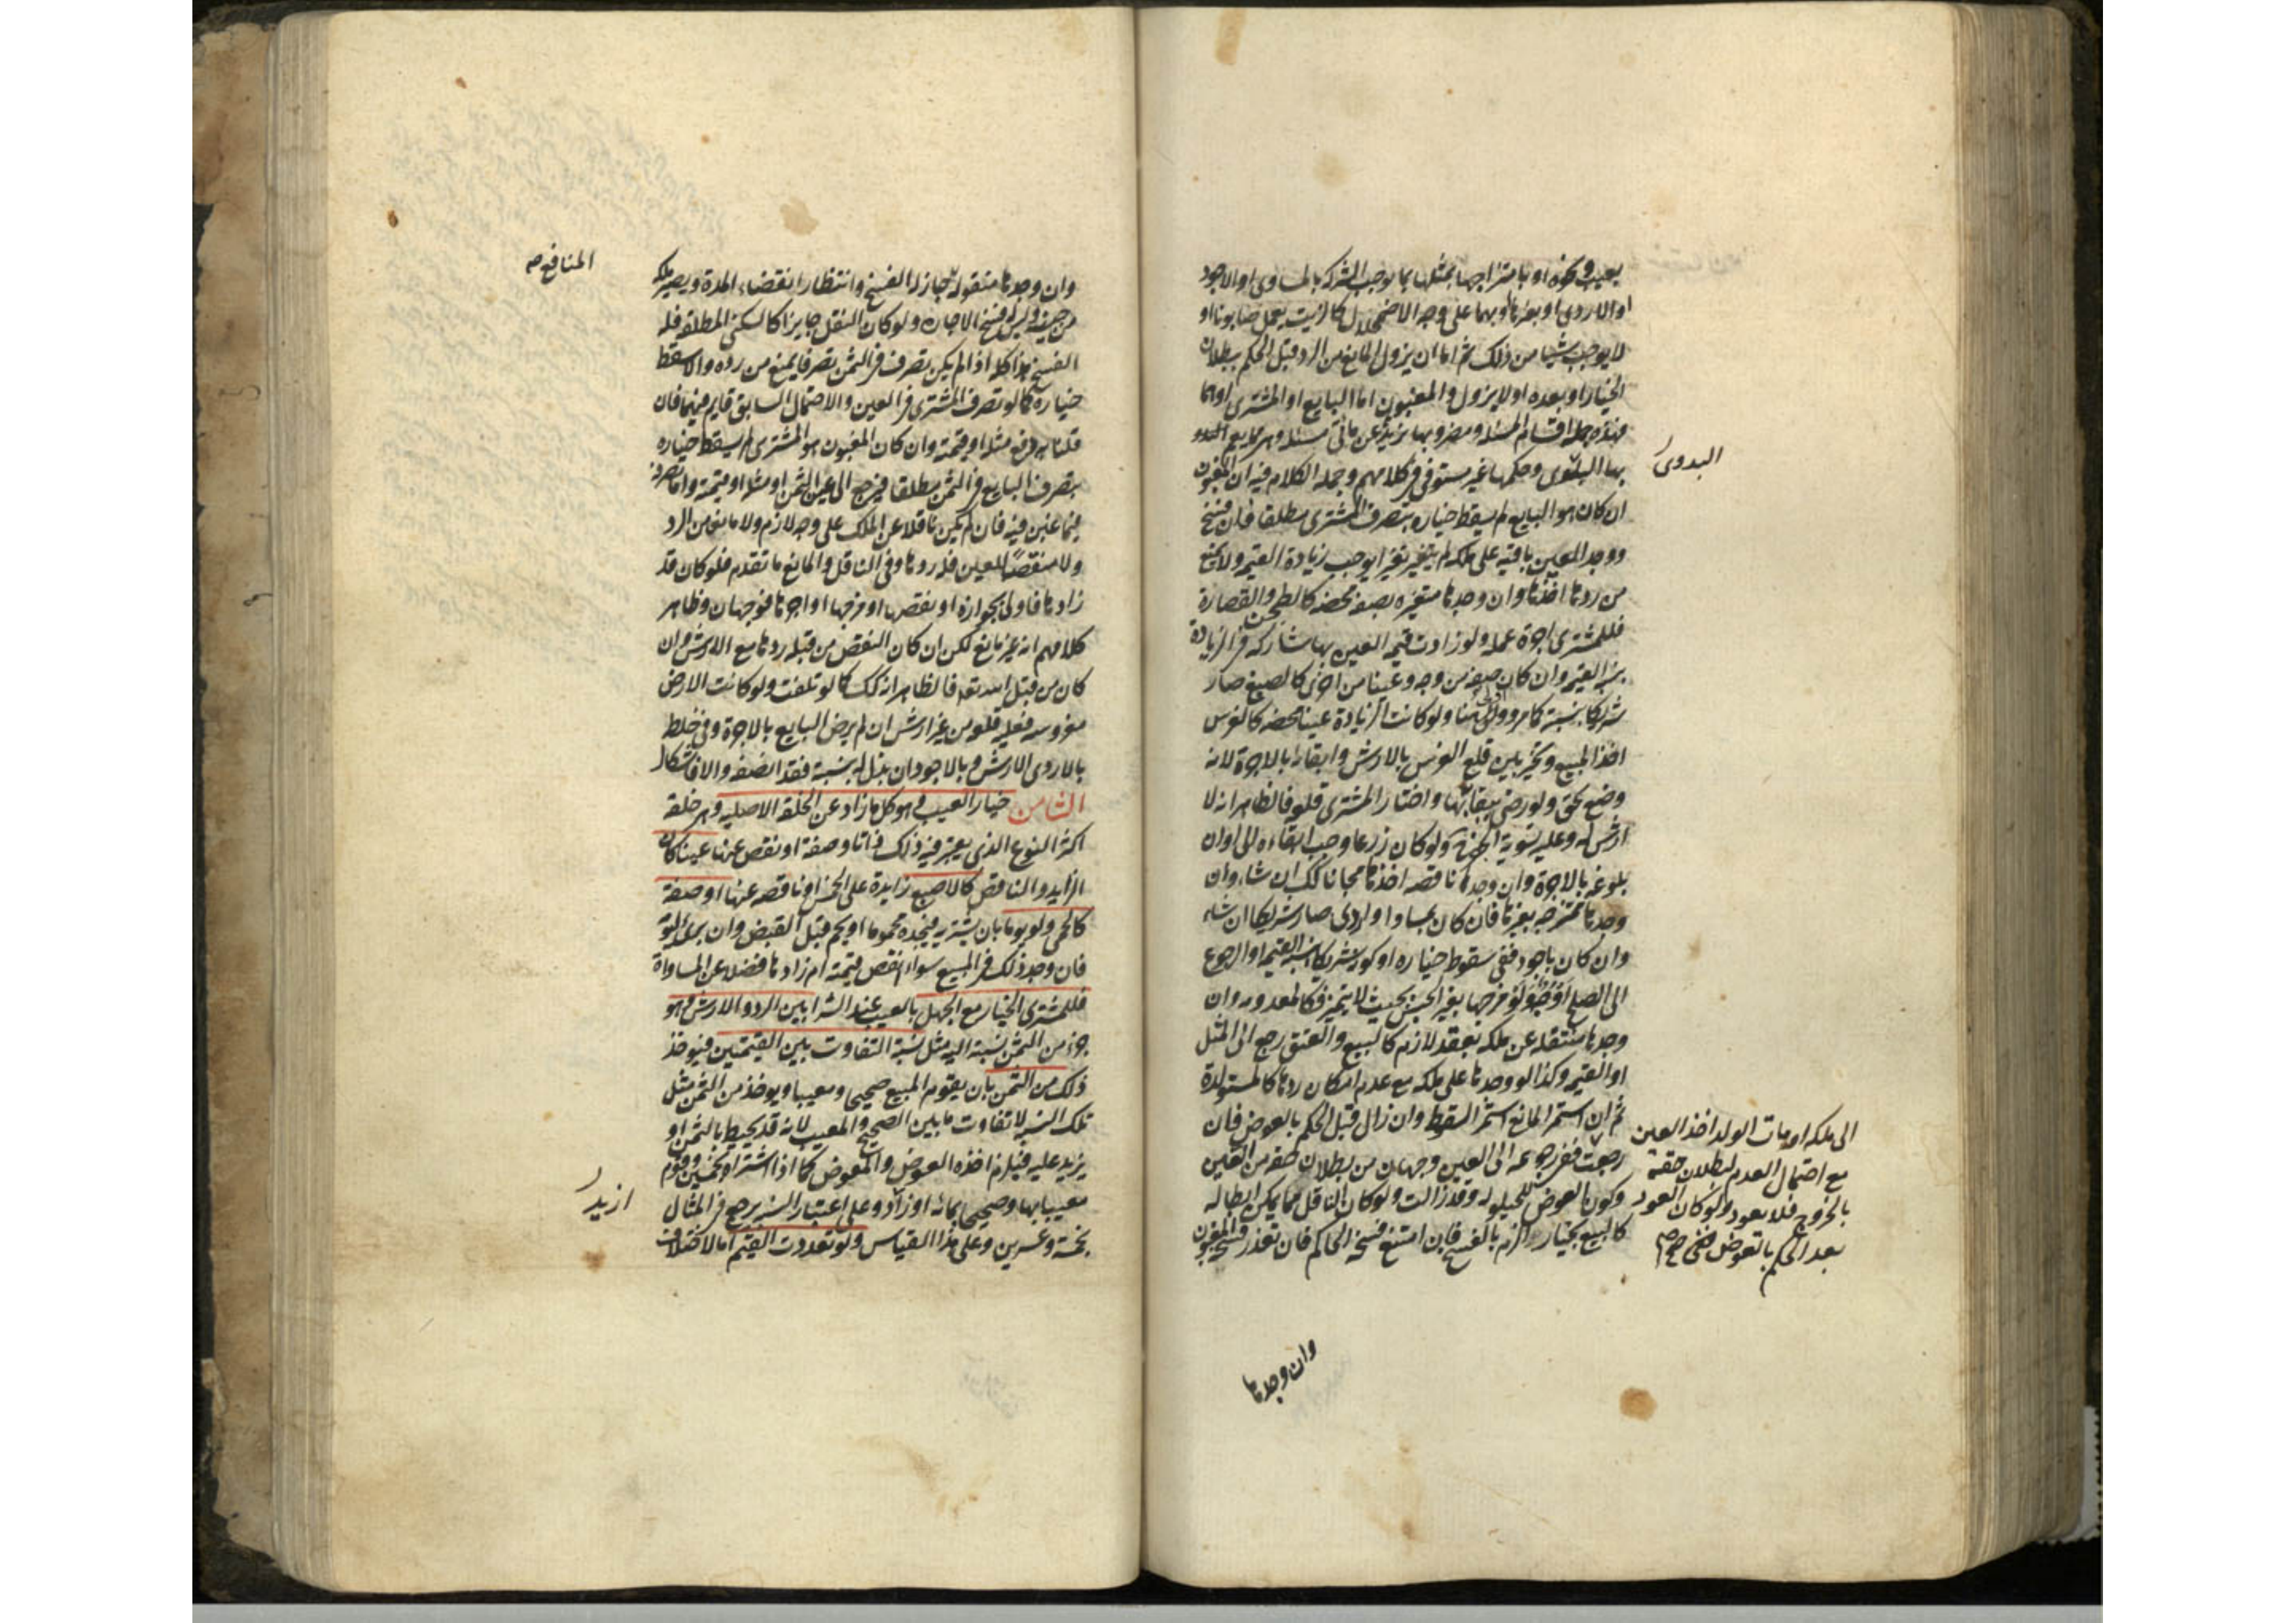 بعيب وكره او بامتزاجها بمثلها بما يوجب الشركة بالمساوى او الاجود
او الاردى او بغيرها او بهما على وجه الاضمحلال كالزيت يعمل صابونا او
لا يوجب شيئا من ذلك ثم اما ان يزول المانع من الرد قبل الحكم ببطلان
الخيار او بعده او لا يزول والمغبون اما البايع او المشترى او هما
فهذه جملة اقسام المسئلة ومضروبها يزيد عن مأتى مسئلة وهى مما يعم
بها البلوى وحكمها غير مستوفى فى كلامهم وجملة الكلام فيه ان المغبون
البدوى
ان كان هو البايع لم يسقط خياره بتصرف المشترى مطلقا فان فسخ
ووجد العين باقية على ملكه لم يتغير تغيرا يوجب زيادة القيمة ولا يمنع
من ردها اخذها وان وجدها متغيره بصفة محضه كالطحن والقصارة
فللمشترى اجرة عمله ولو زادت قيمة العين بها شاركه فى الزيادة
بنسبة القيمة وان كان صفة من وجه وعينا من اخرى كالصبغ صار
شريكا بنسبته كما مر واولى هنا ولو كانت الزيادة عينا محضه كالغرس
اخذ المبيع وتخير بين قلع الغرس بالارش وابقائه بالاجرة لانه
وضع بحق ولو رضى ببقائه بها واختار المشترى قلعه فالظاهر انه لا
ارش له وعليه تسوية الحفر ولو كان زرعا وجب ابقاءه الى اوان
بلوغه بالاجرة وان وجدها ناقصه اخذها مجانا كك ان شاء وان
وجدها ممتزجه بغيرها فان كان بمساو او اردى صار شريكا ان شاء
وان كان باجود ففى سقوط خياره او كونه شريكا بنسبة القيمة او الرجوع
الى الصلح اوجه ولو مزجها بغير الجنس بحيث لا يتميز فكالمعدومه وان
وجدها منتقله عن ملكه بعقد لازم كالبيع والعتق رجع الى المثل
او القيمة وكذا لو وجدها على ملكه مع عدم امكان ردها كالمستولدة
ثم ان استمر المانع استمر السقوط وان زال قبل الحكم بالعوض فان
رجعت ففى رجوعه الى العين وجهان من بطلان حقه من العين
وكون العوض للحيلولة وقد زالت ولو كان الناقل مما يمكن ابطاله
كالبيع بخيار الزم بالفسخ فان امتنع فسخه الحاكم فان تعذر فسخه المغبون
الى ملكه او مات الولد اخذ العين
مع احتمال العدم لبطلان حقه
بالخروج فلا يعود ولو كان العود
بعد الحكم بالعوض ففى
وان وجدها
المنافع
وان وجدها منقولة جاز له الفسخ وانتظار انقضاء المدة ويصير ملكه
من حينه وليس له فسخ الاجاره ولو كان النقل جايزا كالسكنى المطلقه فله
الفسخ هذا كله اذا لم يكن تصرف فى الثمن تصرفا يمنع من رده والا سقط
خياره كما لو تصرف المشترى فى العين والاحتمال السابق قايم فيهما فان
قلنا به دفع مثله او قيمته وان كان المغبون هو المشترى لم يسقط خياره
بتصرف البايع فى الثمن مطلقا فيرجع الى عين الثمن او مثله او قيمته واما تصرفه
فيما غبن فيه فان لم يكن ناقلا عن الملك على وجه لازم ولا مانع من الرد
ولا منقصا للعين فله ردها وفى الناقل والمانع ما تقدم فلو كان قد
زادها فاولى بجوازه او نقصها او مزجها او اجرها فوجهان وظاهر
كلامهم انه غير مانع لكن ان كان النقص من قبله ردها مع الارش وان
كان من قبل الله تعه فالظاهر انه كك كما لو تلفت ولو كانت الارض
مغروسه فعليه قلعه من غير ارش ان لم يرض البايع بالاجرة وفى خلطه
بالاردى الارش وبالاجود ان بذل له بنسبة فقد انصفه والا فاشكال
الثامن خيار العيب وهو كل ما زاد عن الخلقة الاصلية وهى خلقة
اكثر النوع الذى يعتبر فيه ذلك ذاتا وصفة او نقص عنها عينا كان
الزايد والناقص كالاصبع زايدة على الخمس او ناقصه عنها او صفة
كالحمى ولو يوما بان يشتريه فيجده محموما او يحم قبل القبض وان برئ ليومه
فان وجد ذلك فى المبيع سواء انقص قيمته ام زادها فضلا عن المساواة
فللمشترى الخيار مع الجهل بالعيب عند الشرا بين الرد والارش وهو
جزء من الثمن نسبته اليه مثل نسبة التفاوت بين القيمتين فيوخذ
ذلك من الثمن بان يقوم المبيع صحيحا ومعيبا ويوخذ من الثمن مثل
تلك النسبة لا تفاوت ما بين الصحيح والمعيب لانه قد يحيط بالثمن او
يزيد عليه فيلزم اخذه العوض والمعوض كما اذا اشتراه بخمسين وقوم
معيبا بها وصحيحا بمائة او زاد وعلى اعتبار النسبة يرجع فى المثال
ازيد
بخمسة وعشرين وعلى هذا القياس ولو تعددت القيم اما لاختلاف